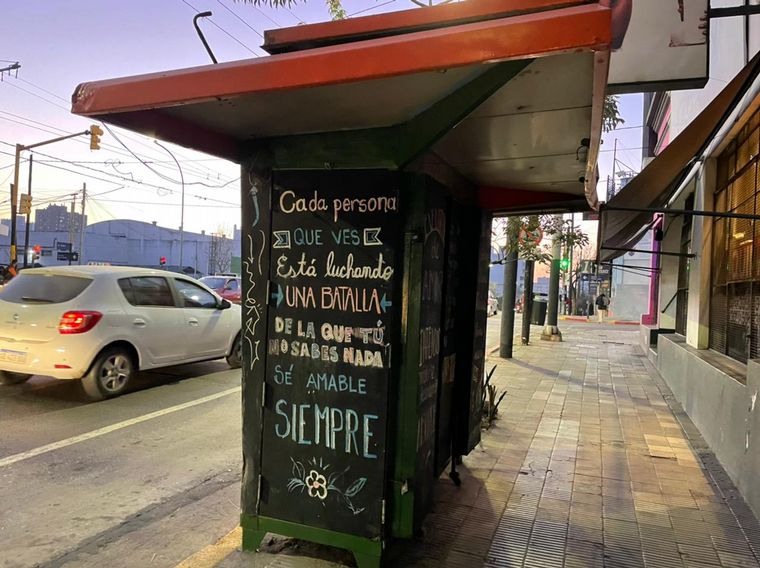 Cada persona
QUE VES
Está luchando
UNA BATALLA
DE LA QUE TÚ
NO SABES NADA
SÉ AMABLE
SIEMPRE